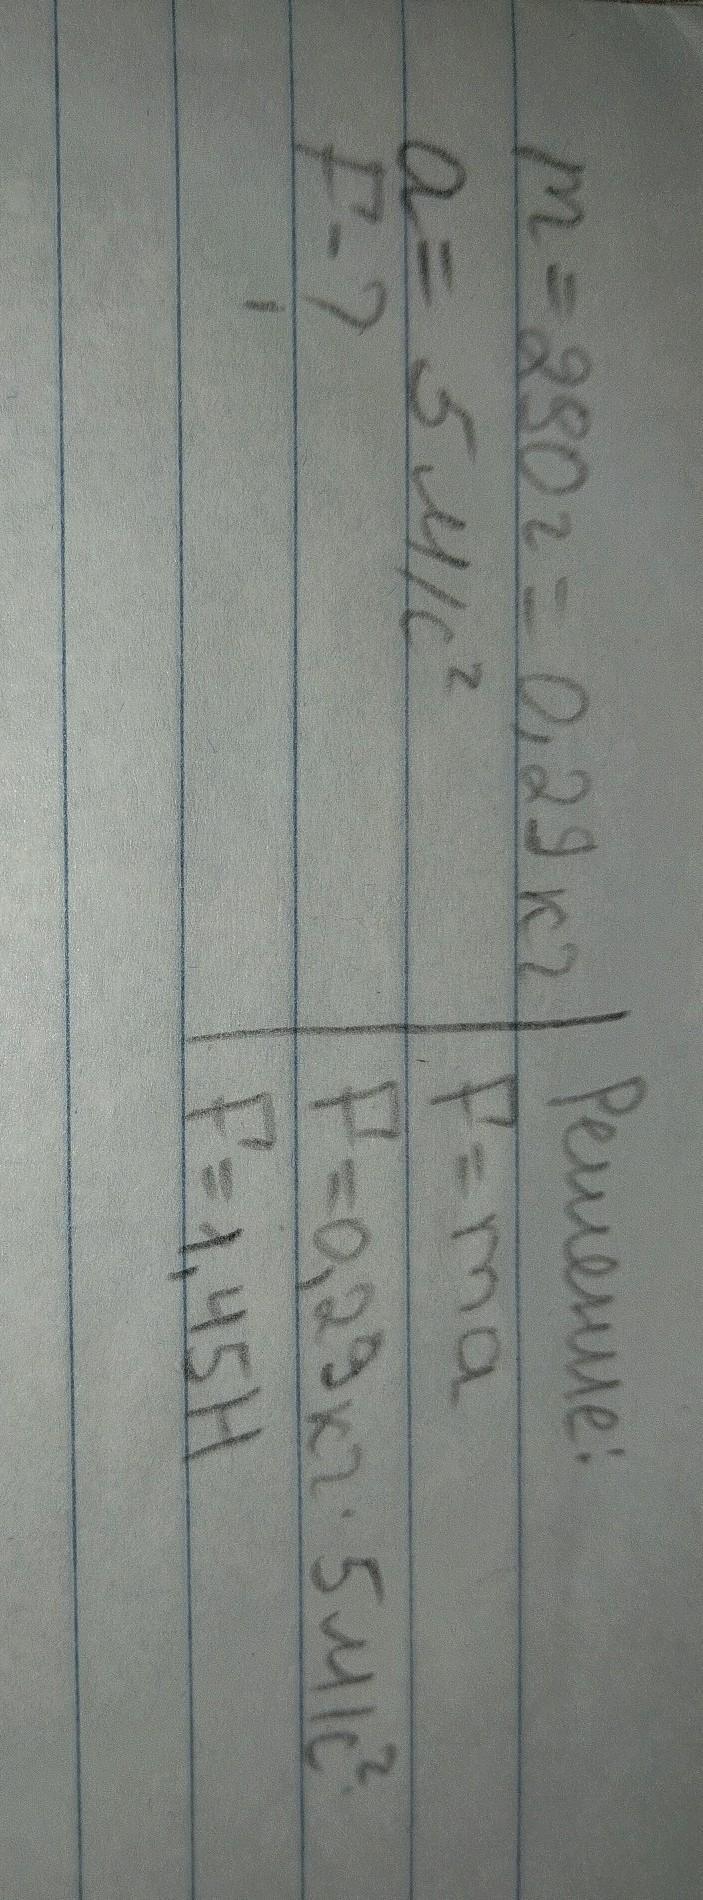 m = 290 г = 0,29 кг
a = 5 м/с²
F - ?
Решение:
F = ma
F = 0,29 кг · 5 м/с²
F = 1,45 Н